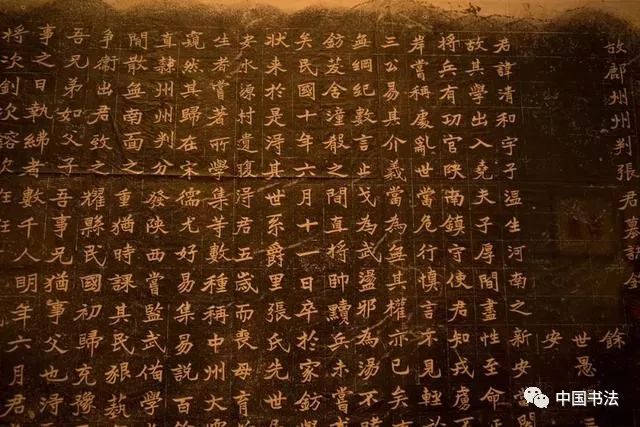 故鄜州州判張君墓誌銘
餘
世愚三
安
君諱清和字子溫生河南之新安
故其學出入堯夫子厚間盡性至命
將兵有功官陝南鎮守使君知戎虜
岸嘗稱處亂世當危行慎言不見輕
三公易其介義當為無其權亦已矣
無綱紀數言止戈為武盪邪為湯不
鈁茇舍潼殽之間直將帥黷兵未嘗
矣民國十年六月十一日卒於家鈁
狀來於是淂其世系爵里張氏先世
安水源村遺腹淂君五歲而喪母育
生者嘗著所學集等數種稱中州大
竟然其歸在宋儒尤好易集易說百
直隸州州判分發陝西嘗監武備學
閒散無南面之重猶時課其民狠蓺
爭衛出君致之耀縣民國初歸充豫
吾兄弟如父子吾事兄猶事父也淂
事之日執紼者數千人明年六月君
將次釗次鎔次
中国书法